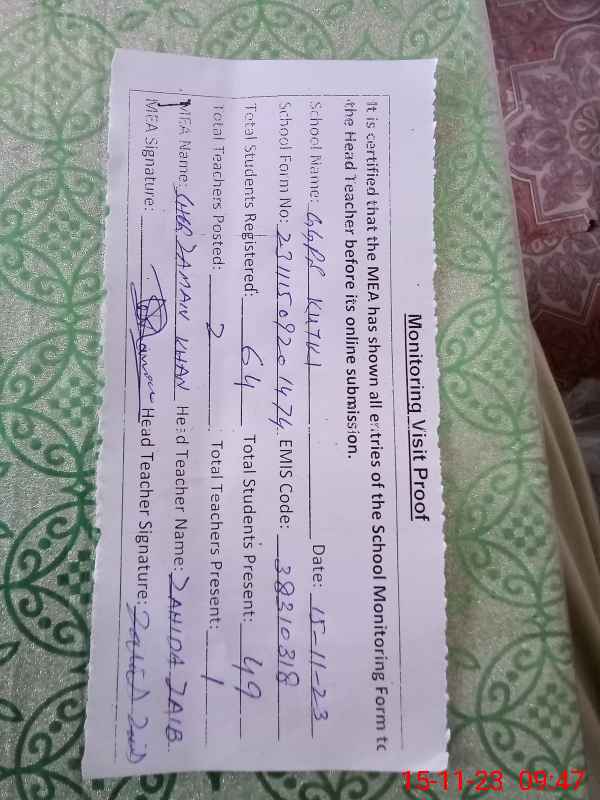 Monitoring Visit Proof
It is certified that the MEA has shown all entries of the School Monitoring Form to
the Head Teacher before its online submission.
School Name: GGPS KUTKI Date: 15-11-23
School Form No: 23111509201474 EMIS Code: 38310318
Total Students Registered: 64 Total Students Present: 49
Total Teachers Posted: 2 Total Teachers Present: 1
MEA Name: ZAMAN KHAN Head Teacher Name: ZAHIDA ZAIB
MEA Signature: Head Teacher Signature: Zahida Zaib
15-11-23 09:47